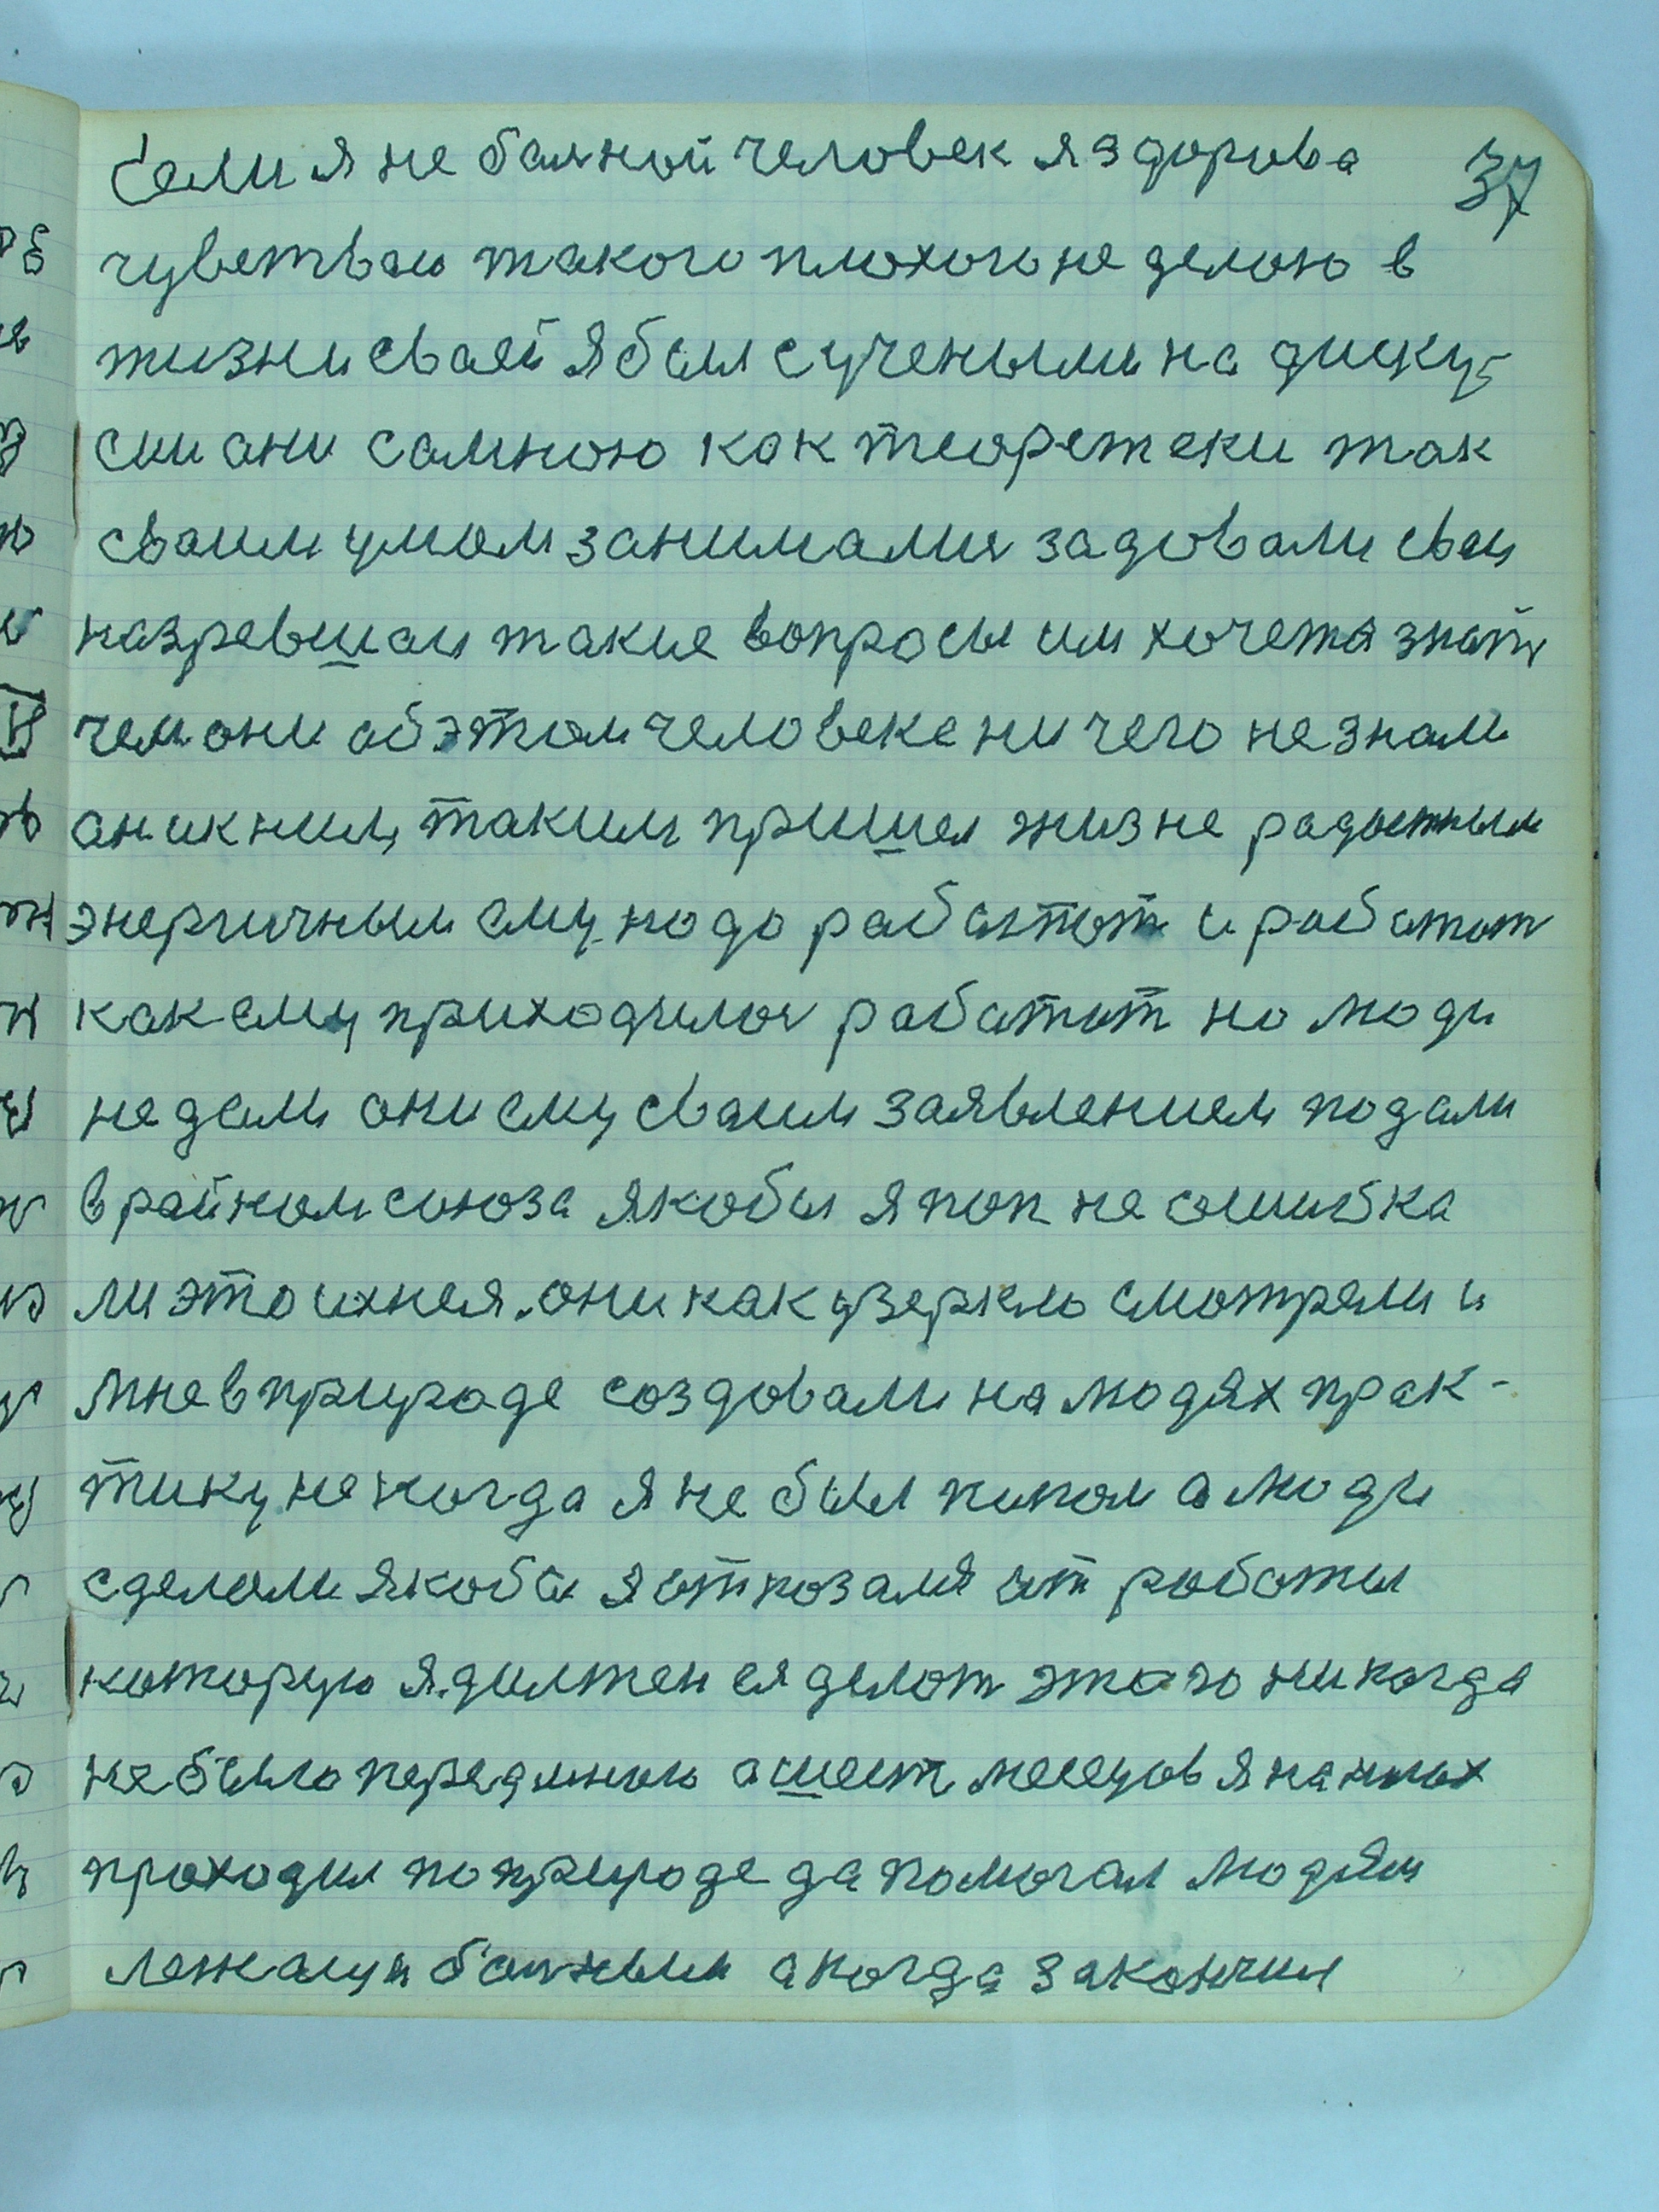 Если я не балной человек я здорова 37
чувствою такого плохого не делою в
жизни сваей я бал с учеными на диску-
сии они самною как теоретеки так
сваим умом занималися задовали сваи
назревшаи такие вопросы им хочется знать
чем они об этом человеке ни чего не знали
он ик ним таким пришел жизне радостным
энергичным ему надо работот и работот
как ему приходилос работот но люди
не дали они ему сваим заявлением подали
в райком союза якобы я поп не ошибка
ли это ихнея. они как узеркло смотрели и
мне в природе создовали на людях прак-
тику не когда я не был попом а люди
сделали якобы я отказался от работы
которую я должен ея делот этаго никогда
не было передмною а шест месецов я на ногах
проходил по природе да помогал людям
лежащи балным а когда закончил